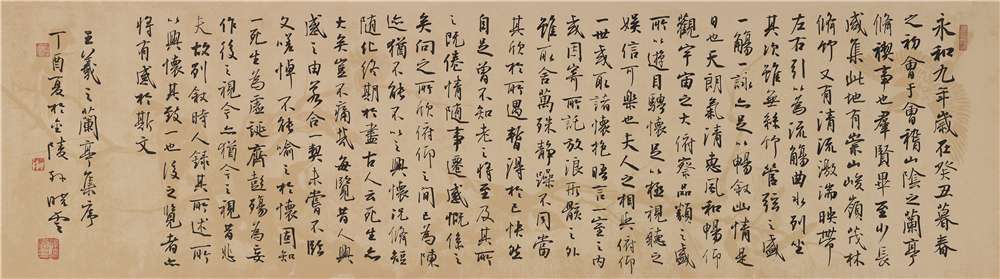 永和九年歲在癸丑暮春
之初會于會稽山陰之蘭亭
脩禊事也羣賢畢至少長
咸集此地有崇山峻嶺茂林
脩竹又有清流激湍映帶
左右引以為流觴曲水列坐
其次雖無絲竹管弦之盛
一觴一詠亦足以暢敘幽情是
日也天朗氣清惠風和暢仰
觀宇宙之大俯察品類之盛
所以遊目騁懷足以極視聽之
娛信可樂也夫人之相與俯仰
一世或取諸懷抱晤言一室之內
或因寄所託放浪形骸之外
雖取舍萬殊靜躁不同當
其欣於所遇暫得於己快然
自足曾不知老之將至及其所
之既倦情隨事遷感慨係之
矣向之所欣俯仰之間已為陳
迹猶不能不以之興懷況脩短
隨化終期於盡古人云死生亦
大矣豈不痛哉每覽昔人興
感之由若合一契未嘗不臨
文嗟悼不能喻之於懷固知
一死生為虛誕齊彭殤為妄
作後之視今亦猶今之視昔悲
夫故列敘時人錄其所述所
以興懷其致一也後之覽者亦
將有感於斯文
王羲之蘭亭集序
丁酉夏於金陵孫曉雲